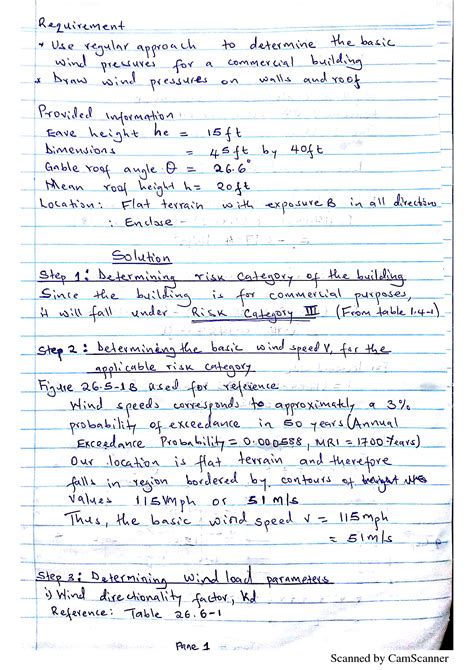 Requirement
* Use regular approach to determine the basic
wind pressures for a commercial building
* Draw wind pressures on walls and roof
Provided Information
Eave height he = 15ft
Dimensions = 45ft by 40ft
Gable roof angle θ = 26.6°
Mean roof height h = 20ft
Location: Flat terrain with exposure B in all directions
: Enclose
Solution
Step 1: Determining risk category of the building
Since the building is for commercial purposes,
it will fall under Risk Category III (From table 1.4-1)
Step 2: Determining the basic wind speed V, for the
applicable risk category
Figure 26.5-1B used for reference
Wind speeds corresponds to approximately a 3%
probability of exceedance in 50 years (Annual
Exceedance Probability = 0.000588, MRI = 1700 Years)
Our location is flat terrain and therefore
falls in region bordered by contours of
values 115Vmph or 51 m/s
Thus, the basic wind speed V = 115mph
= 51m/s
Step 3: Determining wind load parameters
i) Wind directionality factor, Kd
Reference: Table 26.6-1
Page 1
Scanned by CamScanner